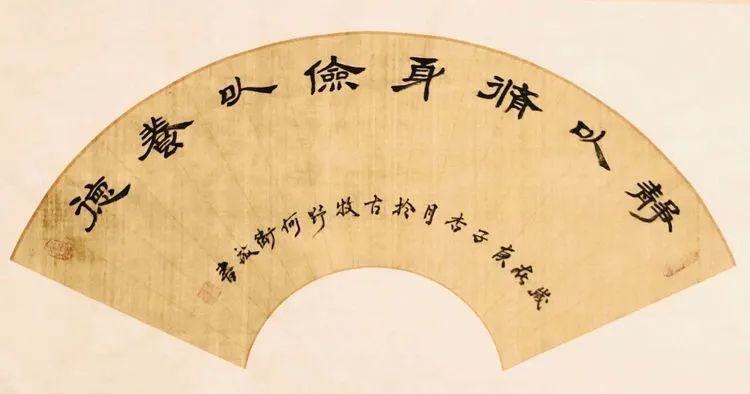 靜以脩身儉以養德
歲在庚子杏月扵古牧野何衛書